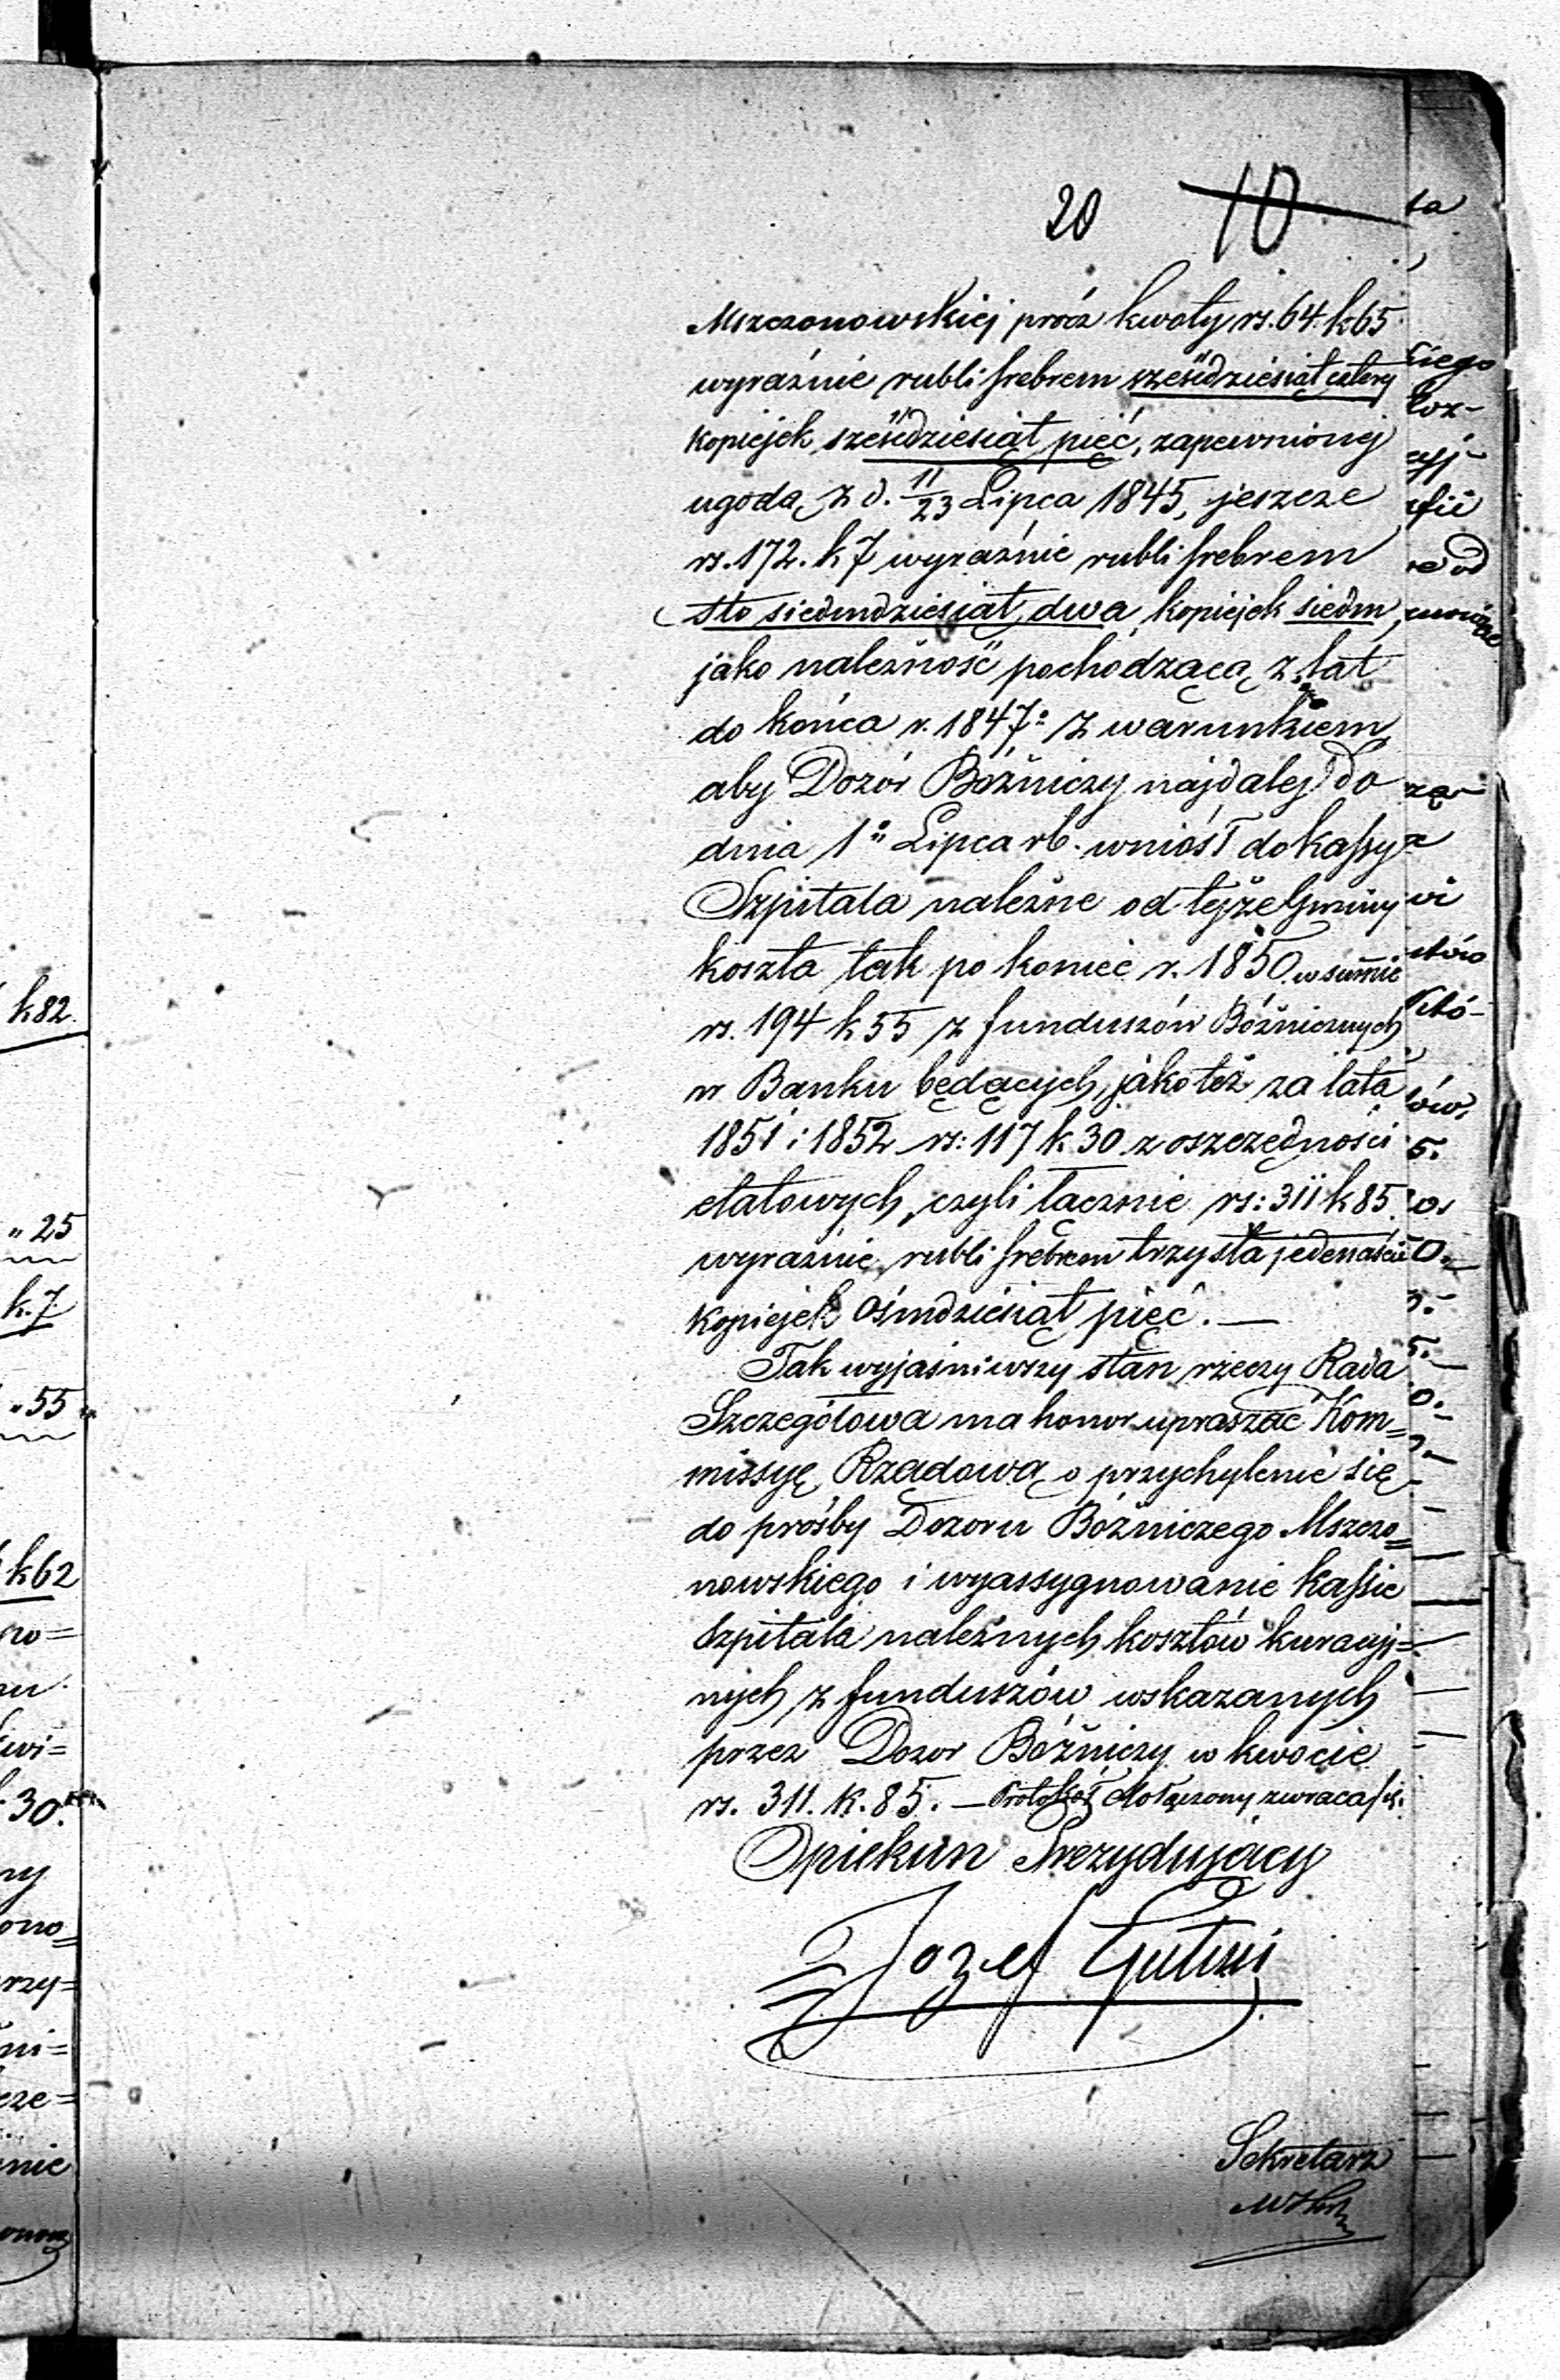 20 10
Mszczonowskiej prócz kwoty rs. 64. k 65
wyraźnie rubli srebrem sześćdziesiąt cztery
kopiejek sześćdziesiąt pięć, zapewnionej
ugodą z d. 11/23 Lipca 1845, jeszcze
rs. 172. k 7 wyraźnie rubli srebrem
sto siedmdziesiąt dwa kopiejek siedm,
jako należność pochodzącą z lat
do końca r. 1847º z warunkiem
aby Dozór Bóżniczy najdalej do
dnia 1º Lipca rb. wniósł do kassy
Szpitala należne od tejże Gminy
koszta tak po koniec r. 1850. w summie
rs. 194 k 55 z funduszów Bóżnicznych
w Banku będących, jakoteż za lata
1851 i 1852 rs: 117 k 30 z oszczędności
etatowych, czyli łącznie rs: 311 k 85.
wyraźnie rubli srebrem trzysta jedenaście
kopiejek ośmdziesiąt pięć. —
Tak wyjaśniwszy stan rzeczy Rada
Szczegółowa ma honor upraszać Kom=
missyę Rządową o przychylenie się
do prośby Dozoru Bóżniczego Mszczo=
nowskiego i wyassygnowanie kassie
Szpitala należnych kosztów kuracyj=
nych z funduszów wskazanych
przez Dozor Bóżniczy w kwocie
rs. 311. k. 85. — Protokół dołączony zwraca się.
Opiekun Prezydujący
Jozef
Sekretarz
k 82.
" 25
k. 7
" 55
k 62
30.